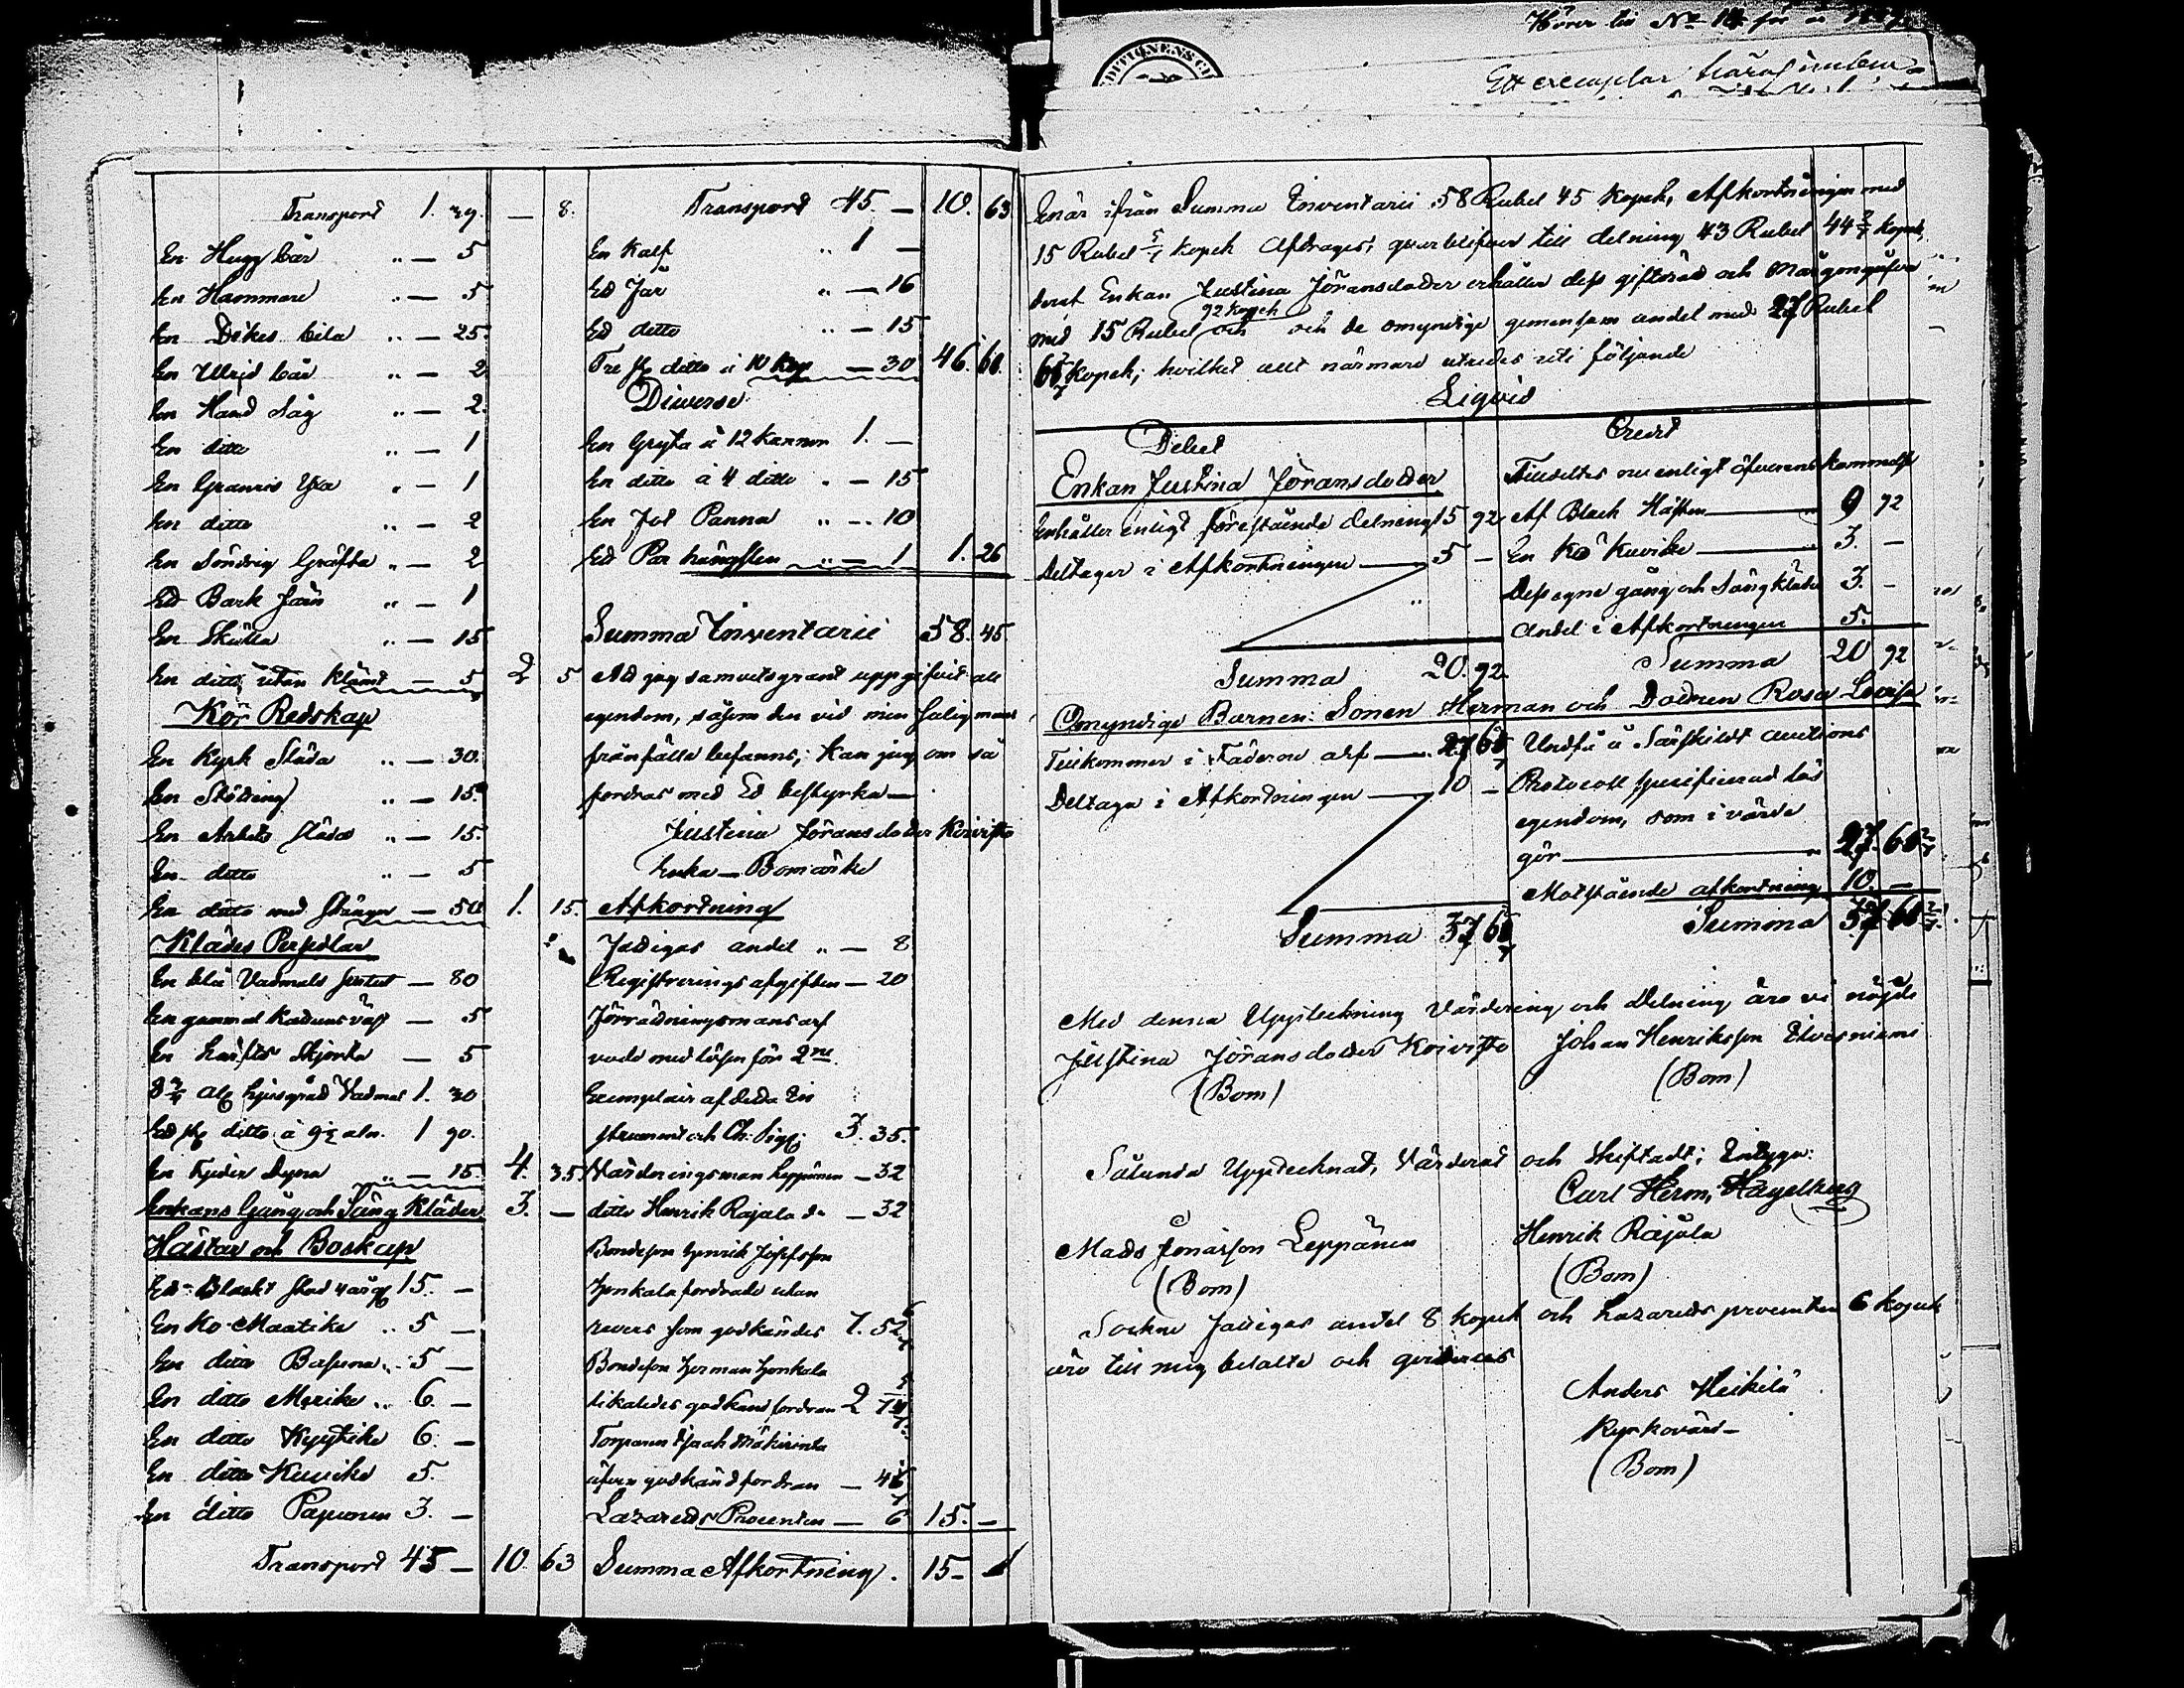 Transport 1. 29. — 8.
En Hugg bår " — 5
En Hammare " — 5
En Dikes bila " — 25.
En Wrid bår " — 2
En Hand Såg " — 2.
En ditto " — 1
En Yxa " — 1
En ditto " — 2
En Söndrig Gräfta " — 2
Ett Bark Järn " — 1
En Skålla " — 15
En ditto, utan — 5 2 5
Kör Redskap
En Kyrk Släda " — 30.
En Stötting " — 15.
En Arbets släda " — 15.
En ditto " — 5
En ditto med Stänger — 50 1. 15.
Klädes Persedlar
En blå Vadmals Surtut — 80
En gammal Kattuns väst — 5
En Skjorta — 5
aln ljusgrå Vadmal 1. 30
Ett st ditto à 9½ aln. 1 90.
En Fjeder Dyna " — 15. 4. 35
Enkans Gång och Säng Kläder 3. —
Hästar och Boskap
Ett Blackt Stod 15. —
En Ko Maatike " 5 —
En ditto " 5 —
En ditto Merike " 6. —
En ditto Kyytike 6. —
En ditto Kuvike 5.
En ditto Papunen 3. —
Transport 45 — 10. 63
Transport 45. — 10. 63
En Kalf " 1 —
Ett Får " — 16
Ett ditto " — 15
Tre st ditto à 10 Kop — 30 46. 61.
Diverse
En Gryta à 12 Kannor 1. —
En ditto à 4 ditto " — 15
En Jol Panna " — 10
Ett Par " — 1 1. 26
Summa Inventarii 58. 45
Att jag samvetsgrant uppgifvit all
egendom, såsom den vid min Salig mans
frånfälle befanns; kan jag om så
fordras med Ed bestyrka —
Justina Jöransdotter Koivisto
Enka — Bomärke
Afkortning
Fattigas andel " — 8
Registrerings afgiften — 20
Förrättningsmans arf
vode med lösen för 2ne
Exemplair af detta In
strument och Ch: Sig: 3. 35.
Värderingsman Leppänen — 32
ditto Henrik Rajala do — 32
Bondeson Henrik Josefsson
Honkala fordrade utan
revers som godkändes 7. 52
Bondeson Herman Honkala
likaledes godkänd fordran 2
Torparen Isaak Mäkirinta
äfven godkänd fordran —
Lazaretts Procenten — 6 15. —
Summa Afkortning. 15 —
Hörer till No 14 för år
Ett exemplar häraf
Enär ifrån Summa Inventarii 58 Rubel 45 Kopek, Afkortningen med
15 Rubel 5/7 Kopek Afdrages, qvarblifver till delning 43 Rubel 44 2/7 Kopek,
deraf Enkan Justina Jöransdotter erhåller dess giftorätt och Morgongåfva
med 15 Rubel 92 Kopek och de omyndige gemensam andel med 27 Rubel
Kopek; hvilket allt närmare utredes uti följande
Liqvid
Debet
Credit
Enkan Justina Jöransdotter
Tilldeltes nu enligt öfverenskommelse
Erhåller enligt förestående delning 15 92
Af Black Hästen — 9 92
Deltager i Afkortningen — 5 —
En Ko Kuvike — 3. —
Dess egna gång och Sängkläder 3. —
Andel i Afkortningen 5.
Summa 20. 92.
Summa 20 92
Omyndige Barnen: Sonen Herman och Dottren Rosa Lovisa
Tillkommer i Fäderne arf —
Deltaga i Afkortningen — 10 —
Undfå å Särskildt auctions
Protocoll specificerad lös
egendom, som i värde
gör —
Motstående afkortning 10. —
Summa
Summa
Med denna Uppteckning Värdering och Delning äro vi nöjde
Justina Jöransdotter Koivisto
(Bom)
Johan Henriksson
(Bom)
Sålunda Upptecknat, Värderat och Skiftadt; Intyga:
Carl Herm, Hagelberg
Mats Jonasson Leppänen
(Bom)
Henrik Rajala
(Bom)
Sockne Fattigas andel 8 kopek och Lazaretts procenten 6 kopek
äro till mig betalte och qvitteras
Anders Heikilä
Kyrkovärd —
(Bom)